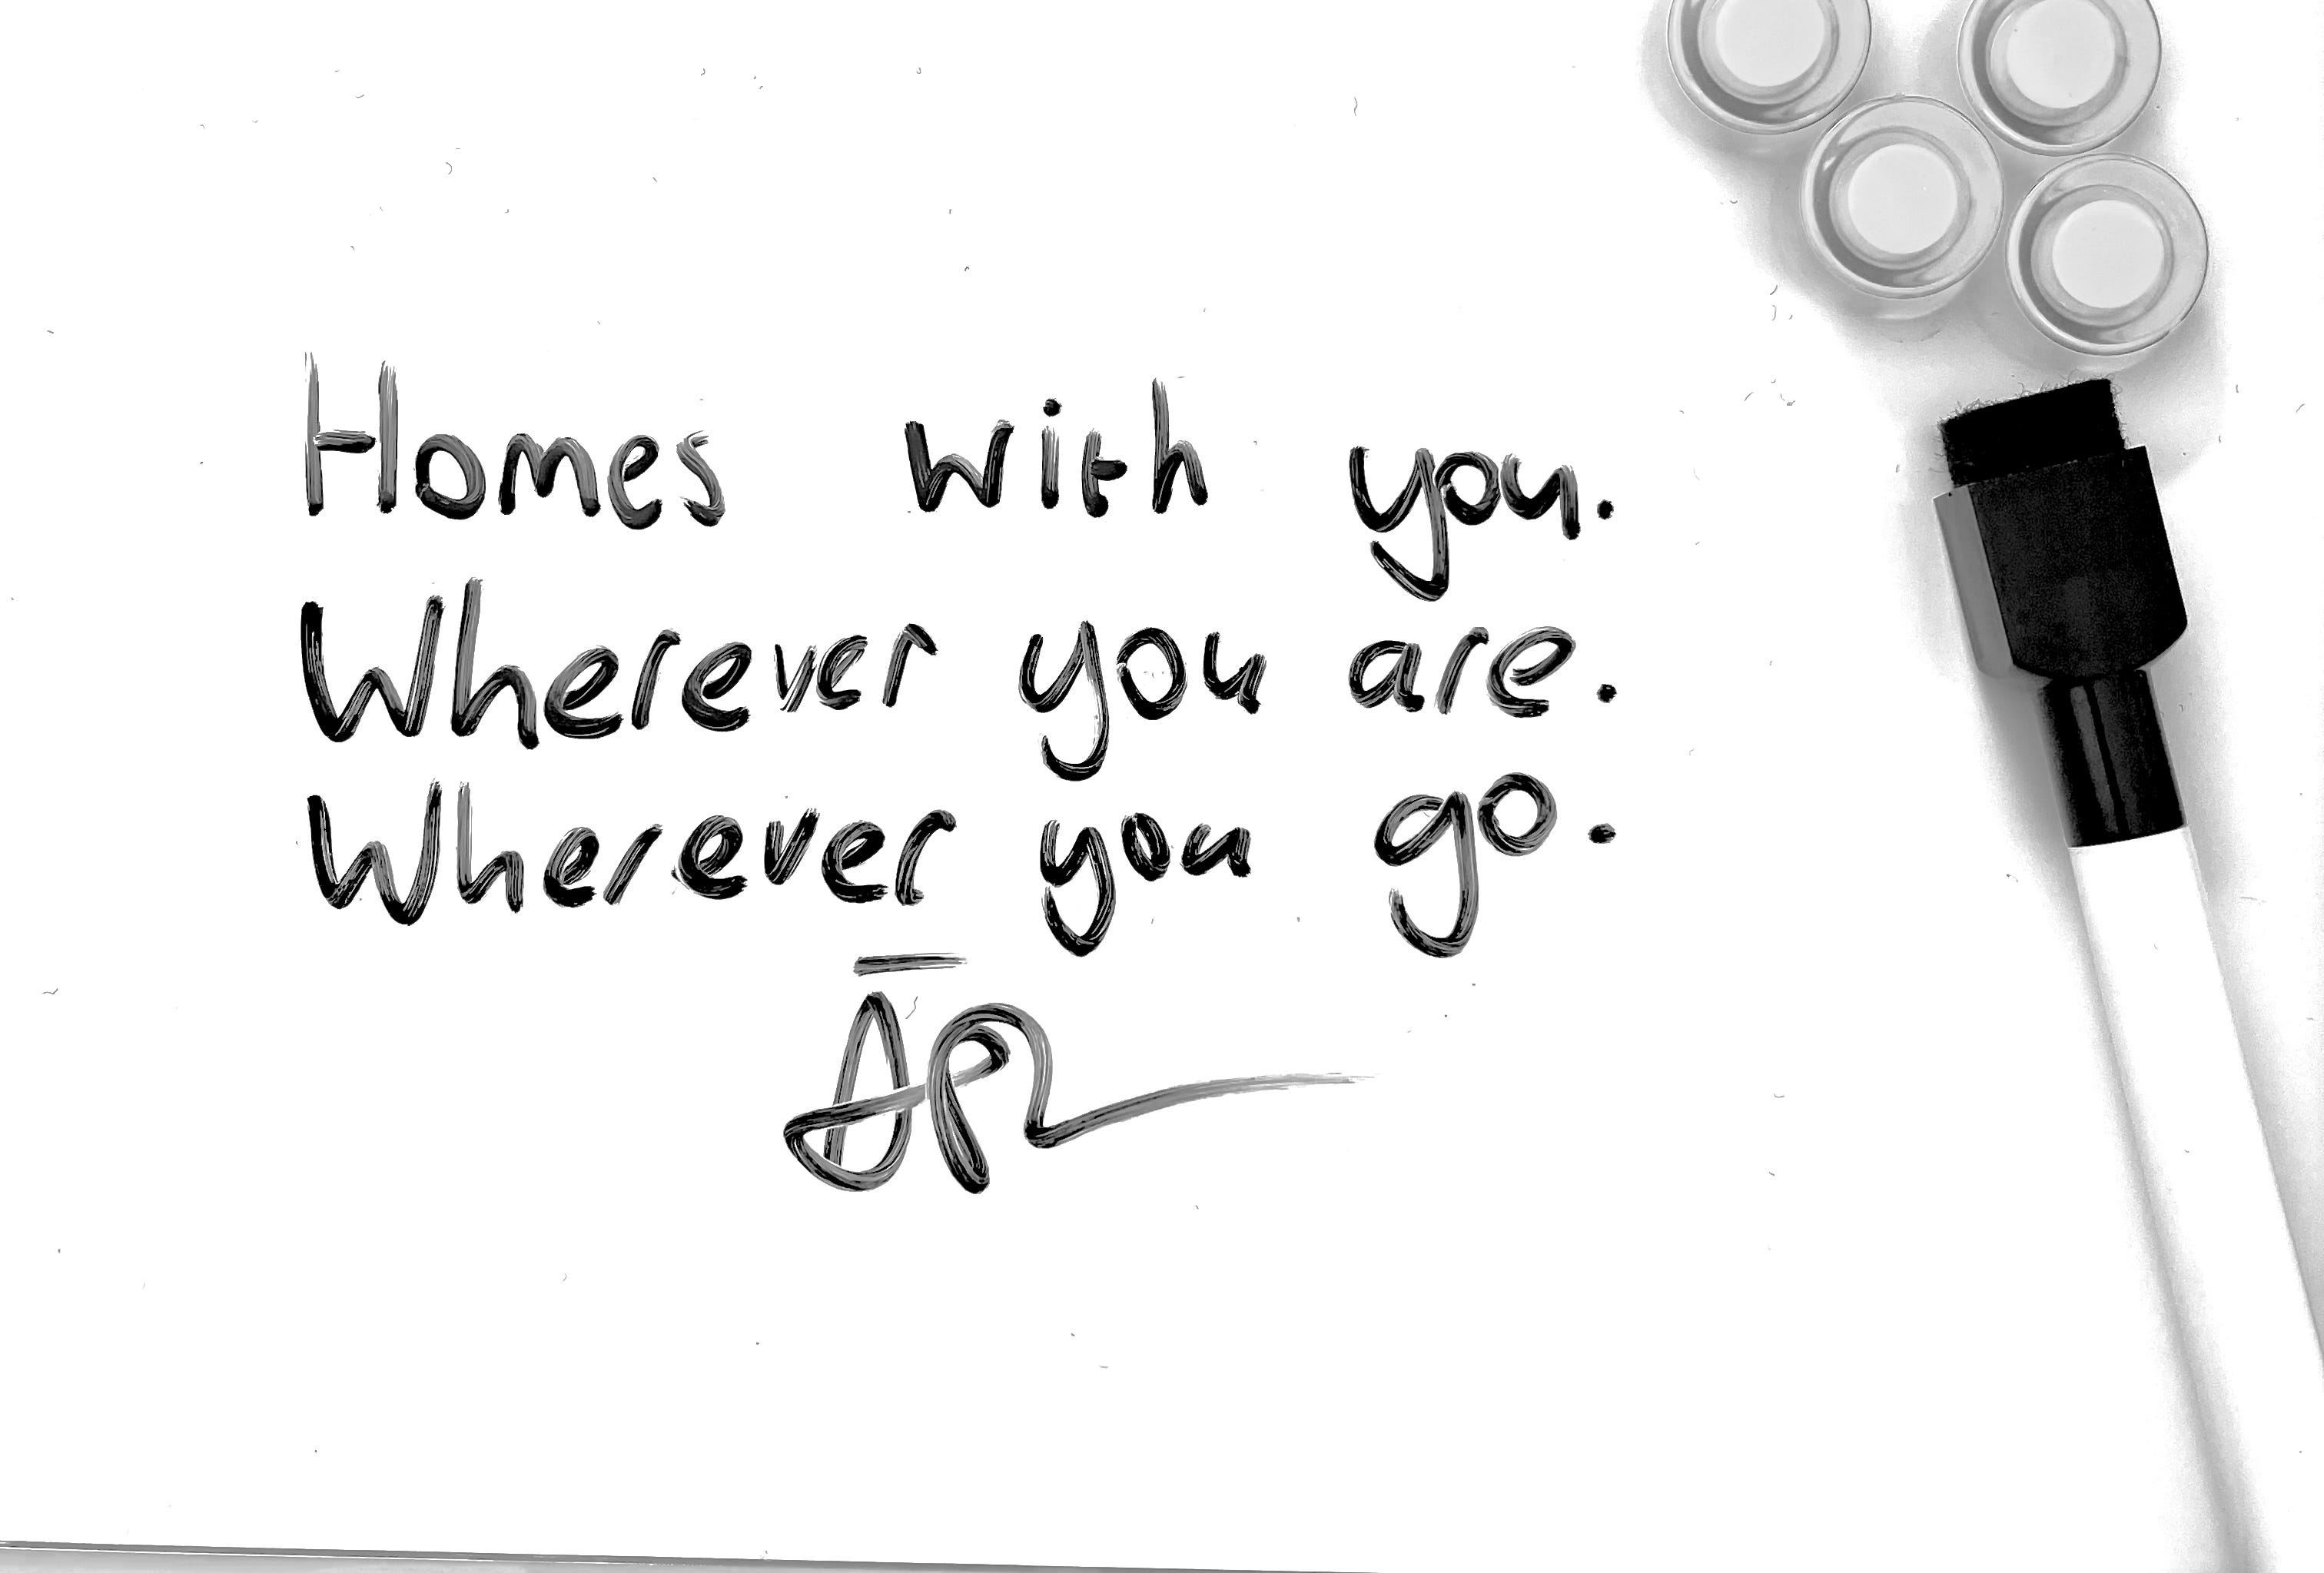 Homes with you.
Wherever you are.
Wherever you go.